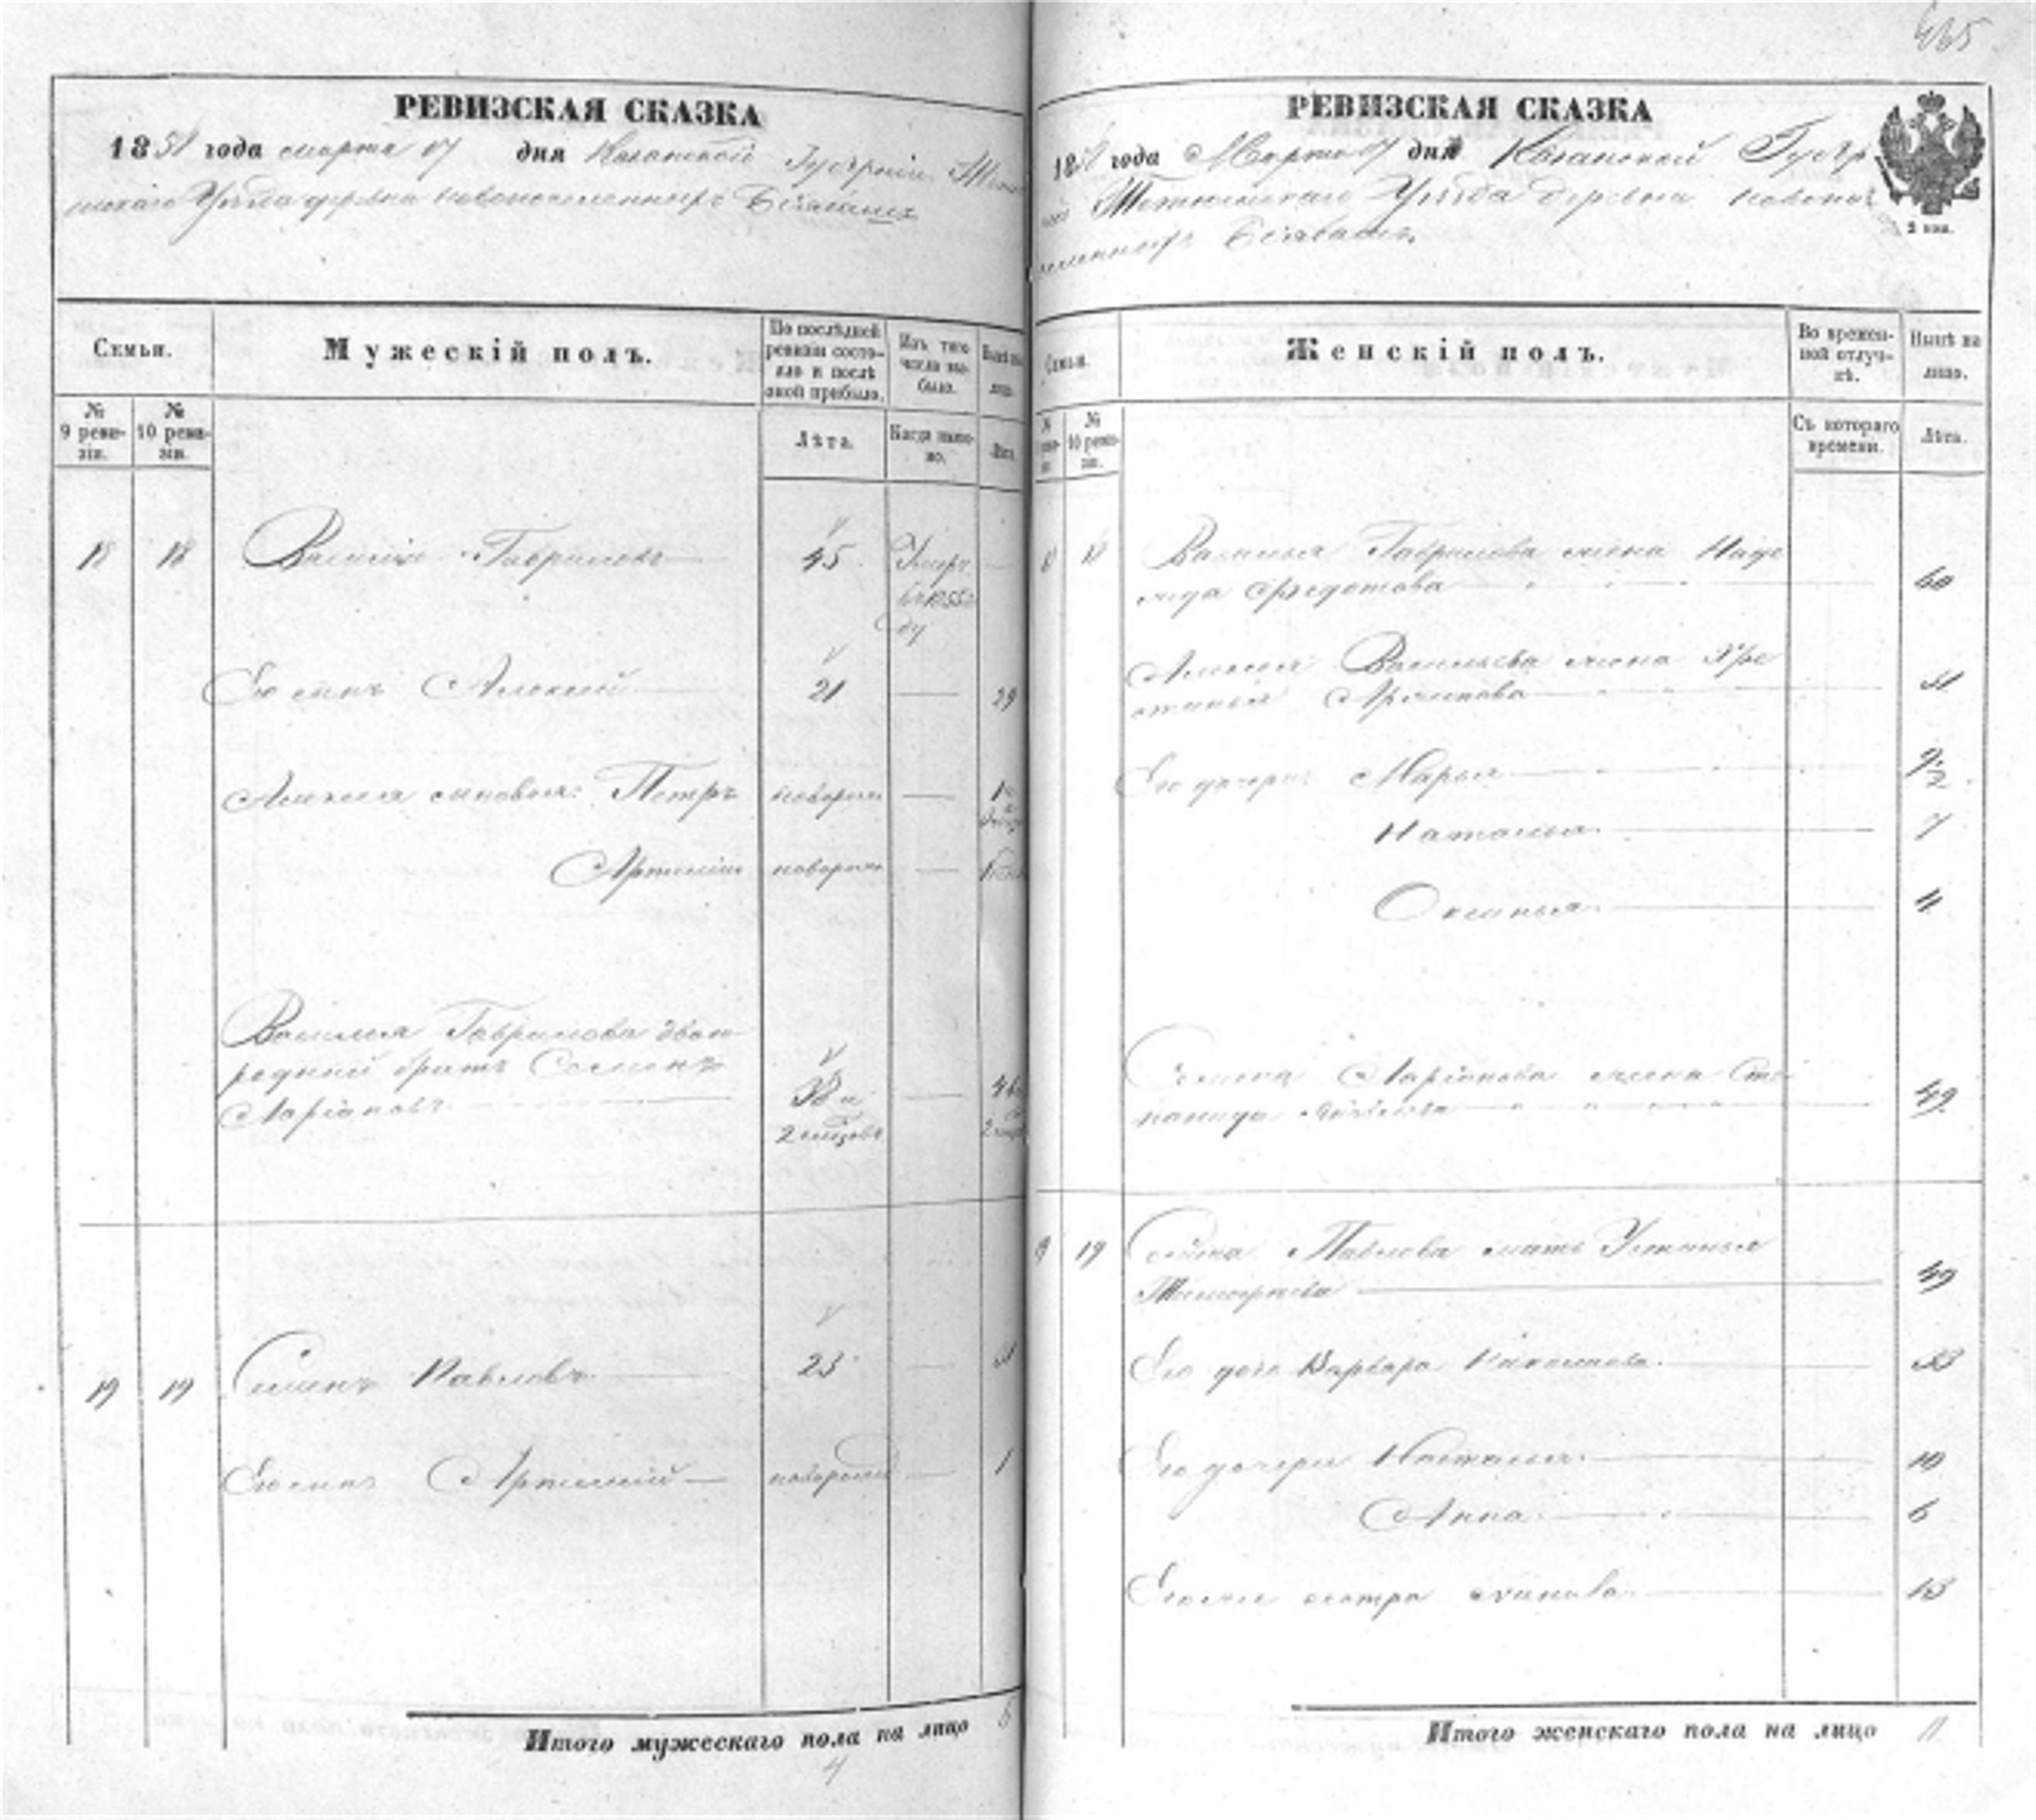 РЕВИЗСКАЯ СКАЗКА
1858 года марта 17 дня Казанской Губерніи
Уѣзда деревня новопоселенныхъ
Семьи.
Мужескій полъ.
По послѣдней ревизіи состояло и послѣ оной прибыло.
Изъ того числа выбыло.
Нынѣ на лицо.
№ 9 ревизіи.
№ 10 ревизіи.
Лѣта.
Когда именно.
Лѣта.
18 18 Василій Гавриловъ 45 Умеръ
въ 1855 го
ду
Его сынъ Алексей 21 29
Алексея сыновья: Петръ новорожд
Артемій новорож
Василья Гаврилова двою-
родный братъ Семенъ
Ларіоновъ 38 и
2 месцовъ
19 19 Семенъ Павловъ 23 31
Его сынъ Артемій новорожд 1
Итого мужескаго пола на лицо 5
4
465
РЕВИЗСКАЯ СКАЗКА
1858 года Марта 17 дня Казанской Губер
Тетюшскаго Уѣзда деревни новопос
еленныхъ
2 коп.
Семьи.
Женскій полъ.
Во временной отлучкѣ.
Нынѣ на лицо.
№ 10 ревизіи.
Съ котораго времени.
Лѣта.
18 Василья Гаврилова жена Наде
жда Федотова 60
Алексея Васильева жена Хре
стинья Архипова 31
Его дочери: Марья
Наталья 7
Оксинья 4
Семена Ларіонова жена Сте
панида 49
19 Семена Павлова мать Устинья
Тимофеева 49
Варвара Николаева 33
Его дочери Наталья 10
Анна 6
сестра 13
Итого женскаго пола на лицо 11